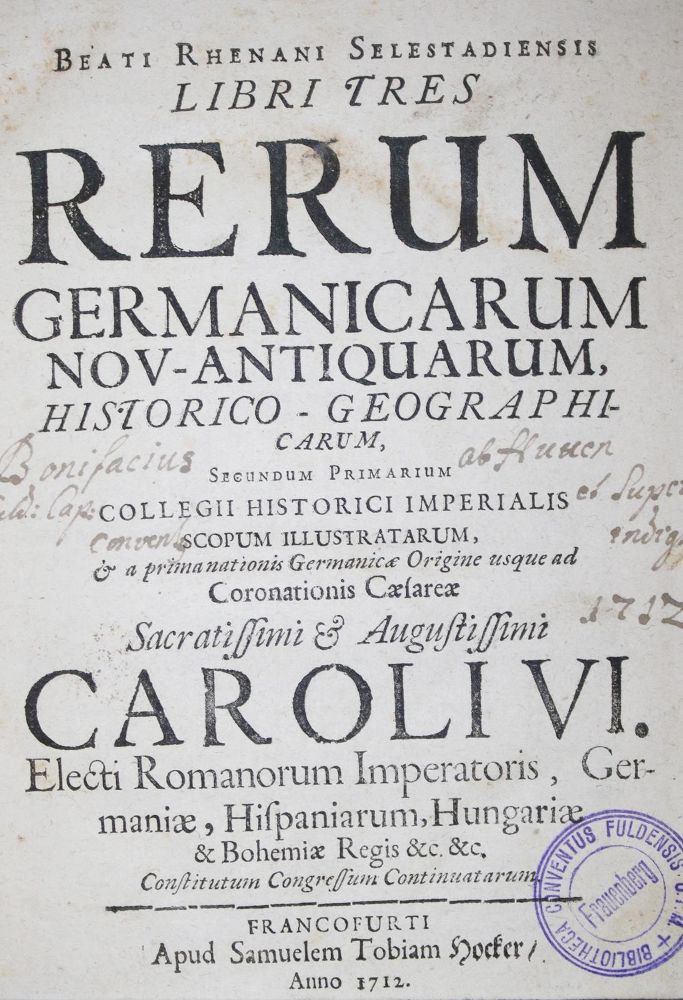 BEATI RHENANI SELESTADIENSIS
LIBRI TRES
RERUM
GERMANICARUM
NOV-ANTIQUARUM,
HISTORICO - GEOGRAPHI-
CARUM,
Bonifacius
ab Hutten
SECUNDUM PRIMARIUM
Cap:
COLLEGII HISTORICI IMPERIALIS
et Super
convent
SCOPUM ILLUSTRATARUM,
indig
& a prima nationis Germanicæ Origine usque ad
Coronationis Cæſareæ
1712
Sacratiſſimi & Auguſtiſſimi
CAROLI VI.
Electi Romanorum Imperatoris, Ger-
maniæ, Hiſpaniarum, Hungariæ
& Bohemiæ Regis &c. &c.
Conſtitutum Congreſſum Continuatarum.
FRANCOFURTI
Apud Samuelem Tobiam Hocker/
Anno 1712.
BIBLIOTHECA CONVENTUS FULDENSIS O.F.M. +
Frauenberg